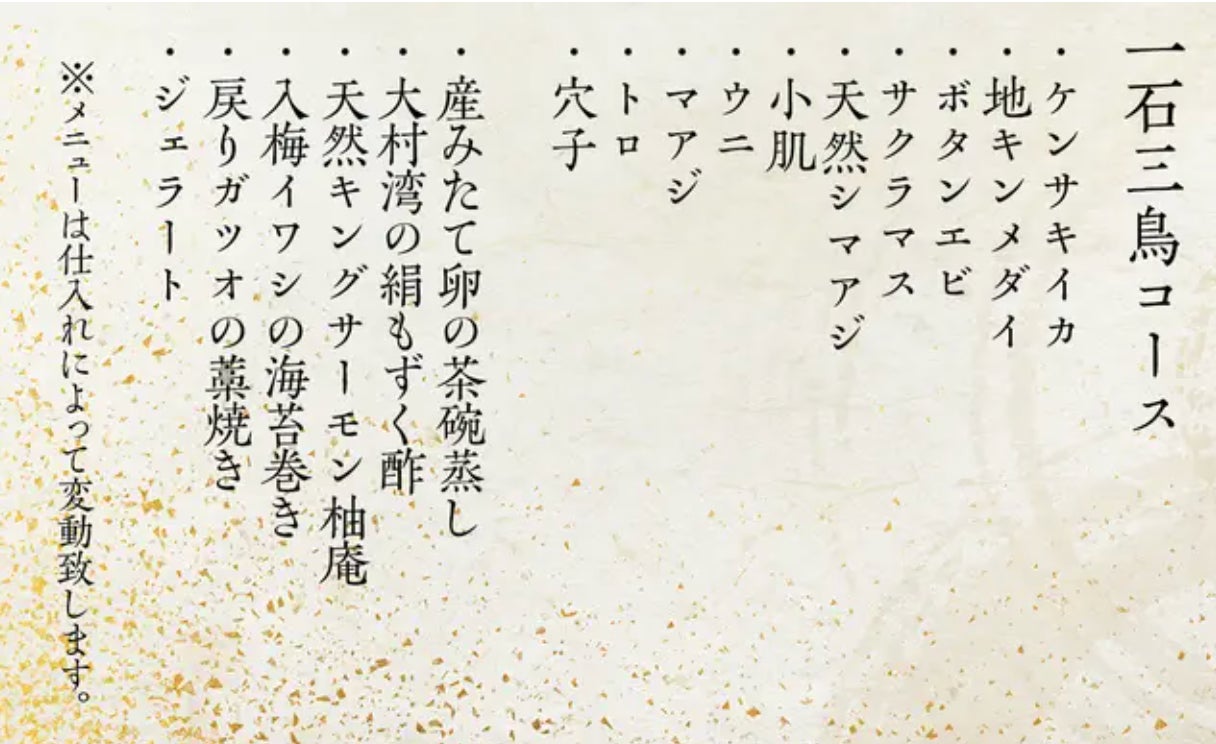 一石三鳥コース
・ケンサキイカ
・地キンメダイ
・ボタンエビ
・サクラマス
・天然シマアジ
・小肌
・ウニ
・マアジ
・トロ
・穴子
・産みたて卵の茶碗蒸し
・大村湾の絹もずく酢
・天然キングサーモン柚庵
・入梅イワシの海苔巻き
・戻りガツオの藁焼き
・ジェラート
※メニューは仕入れによって変動致します。